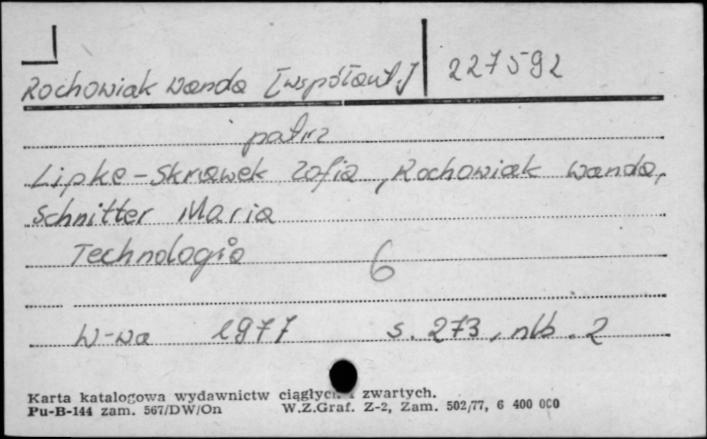 Rochowiak Wanda [współaut.] 227592
patrz
Lipke-Skrawek Zofia, Rochowiak Wanda,
Schnitter Maria
Technologia 6
W-wa 1977 s. 273, nlb. 2
Karta katalogowa wydawnictw ciągłych i zwartych.
Pu-B-144 zam. 567/DW/On W.Z.Graf. Z-2, Zam. 502/77, 6 400 000